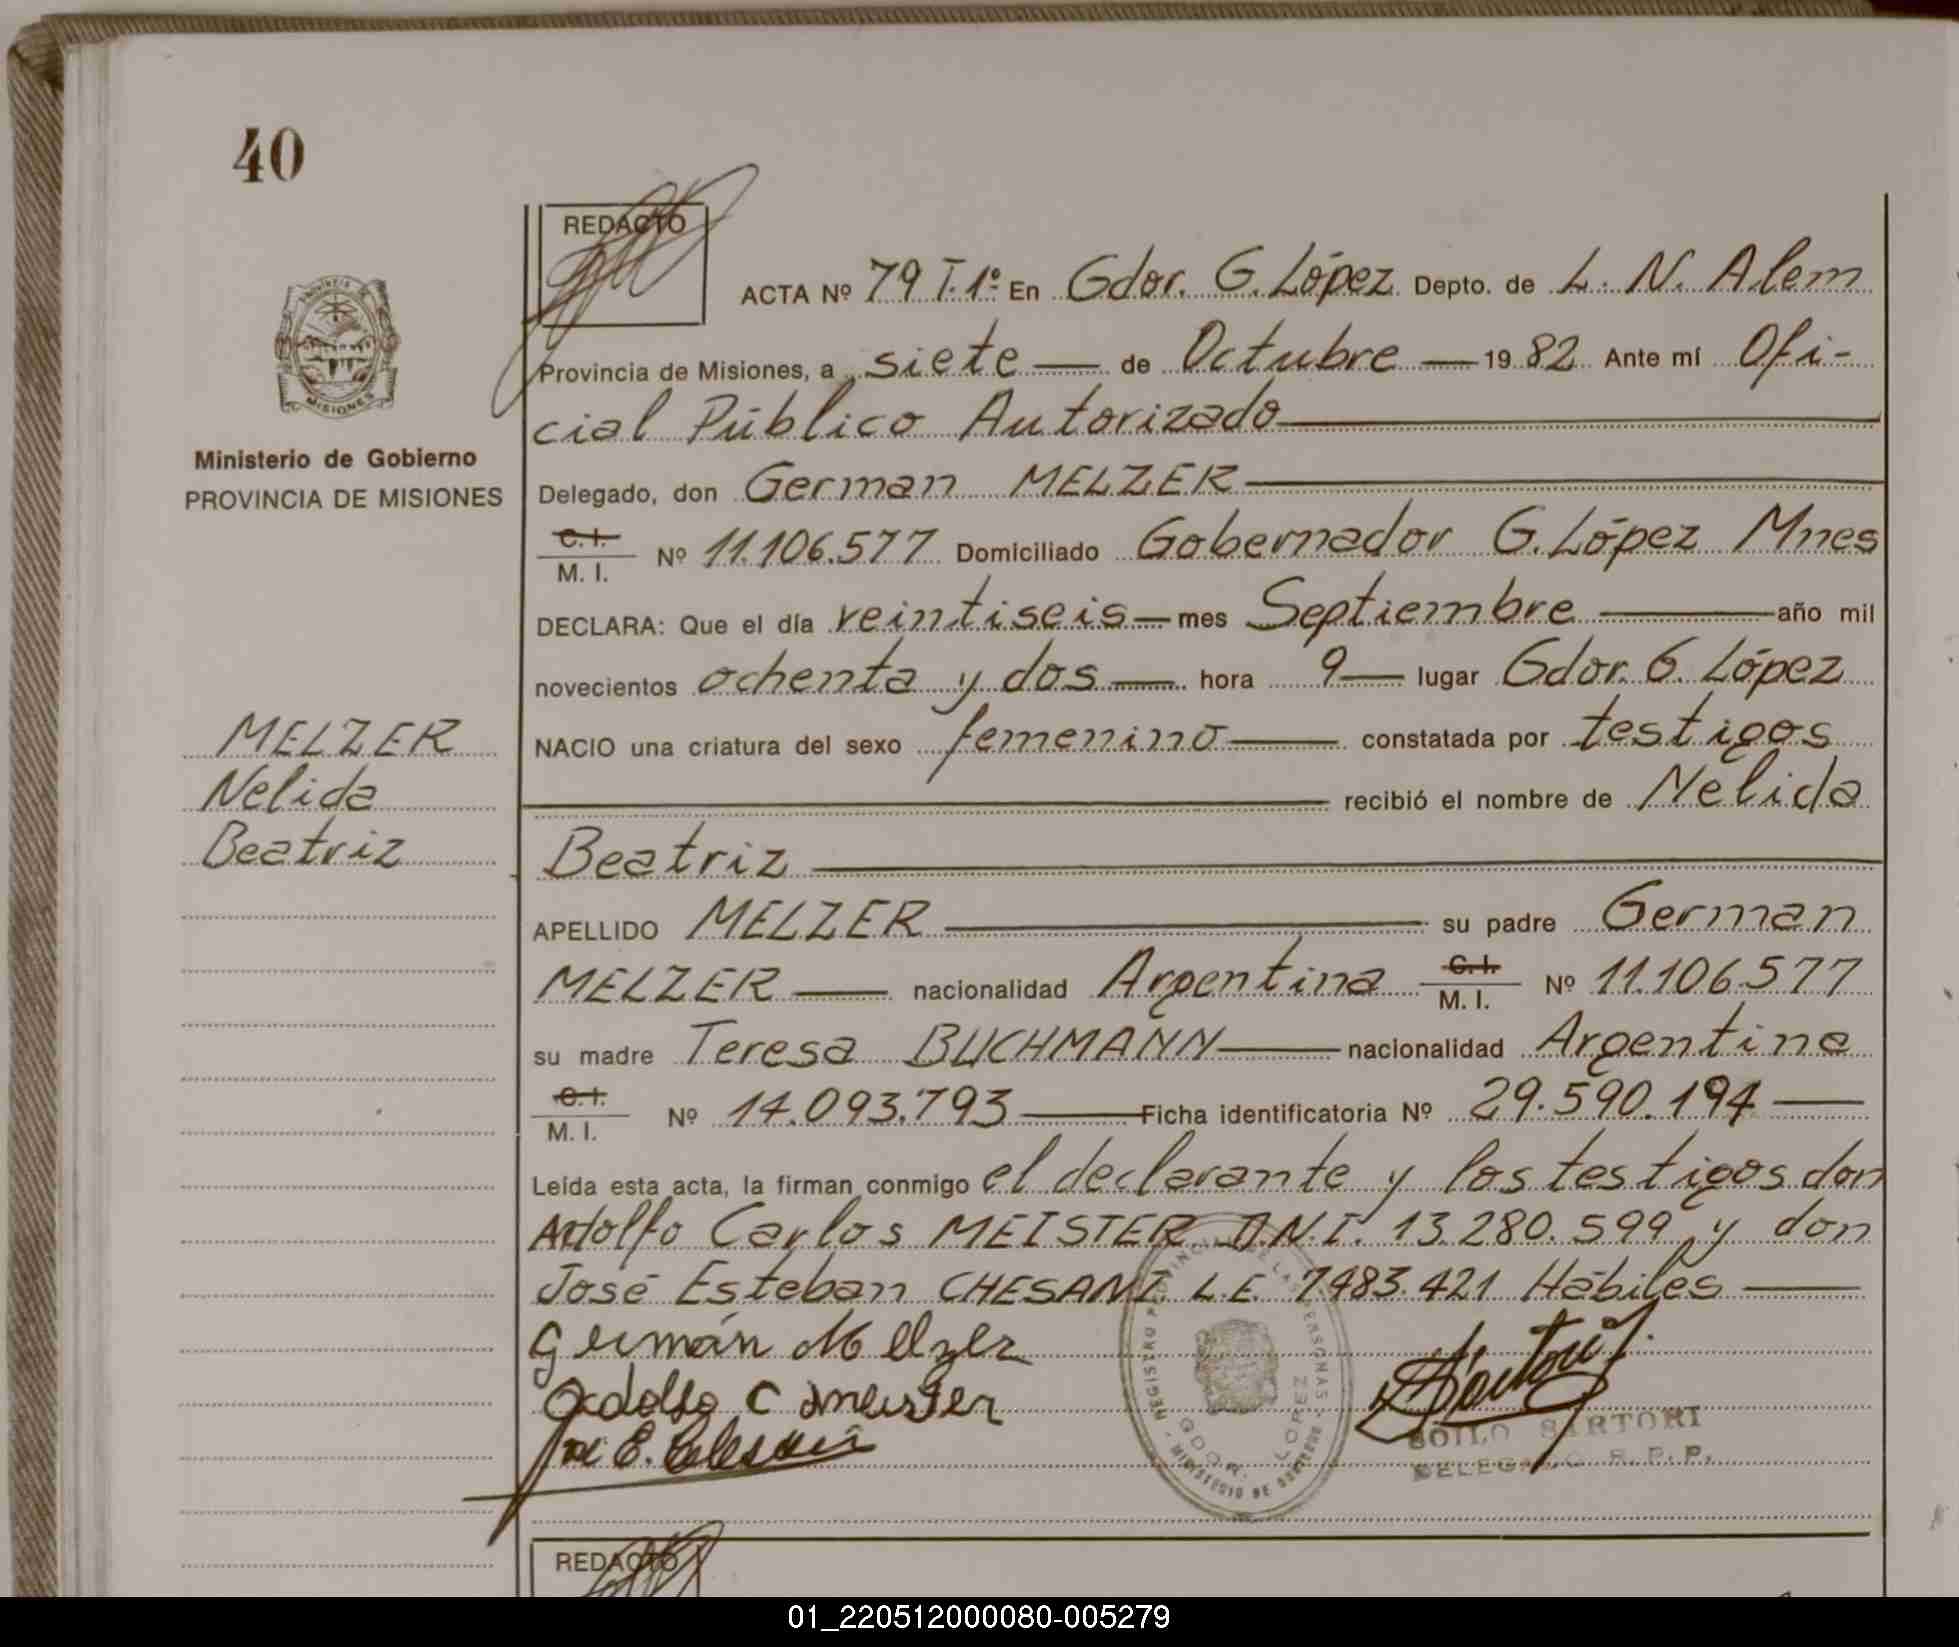 40
REDACTO
ACTA Nº 79 T. 1º En Gdor. G. López Depto. de L. N. Alem
Provincia de Misiones, a siete de Octubre 1982 Ante mí Ofi-
cial Público Autorizado
PROVINCIA DE MISIONES
Ministerio de Gobierno
PROVINCIA DE MISIONES
Delegado, don German MELZER
C. I. / M. I. Nº 11.106.577 Domiciliado Gobernador G. López Mnes
DECLARA: Que el día veintiseis mes Septiembre año mil
novecientos ochenta y dos hora 9 lugar Gdor. G. López
NACIO una criatura del sexo femenino constatada por testigos
recibió el nombre de Nelida
Beatriz
MELZER
Nelida
Beatriz
APELLIDO MELZER su padre German
MELZER nacionalidad Argentina C. I. / M. I. Nº 11.106.577
su madre Teresa BUCHMANN nacionalidad Argentina
C. I. / M. I. Nº 14.093.793 Ficha identificatoria Nº 29.590.194
Leída esta acta, la firman conmigo el declarante y los testigos don
Adolfo Carlos MEISTER D.N.I. 13.280.599 y don
José Esteban CHESANI L.E. 7483.421 Hábiles
Germán Melzer
Adolfo C Meister
José E. Chesani
Sartori
REGISTRO PROVINCIAL DE LAS PERSONAS
MINISTERIO DE GOBIERNO
GDOR. LOPEZ
SOILO SARTORI
DELEGADO R. P. P.
REDACTO
01_220512000080-005279